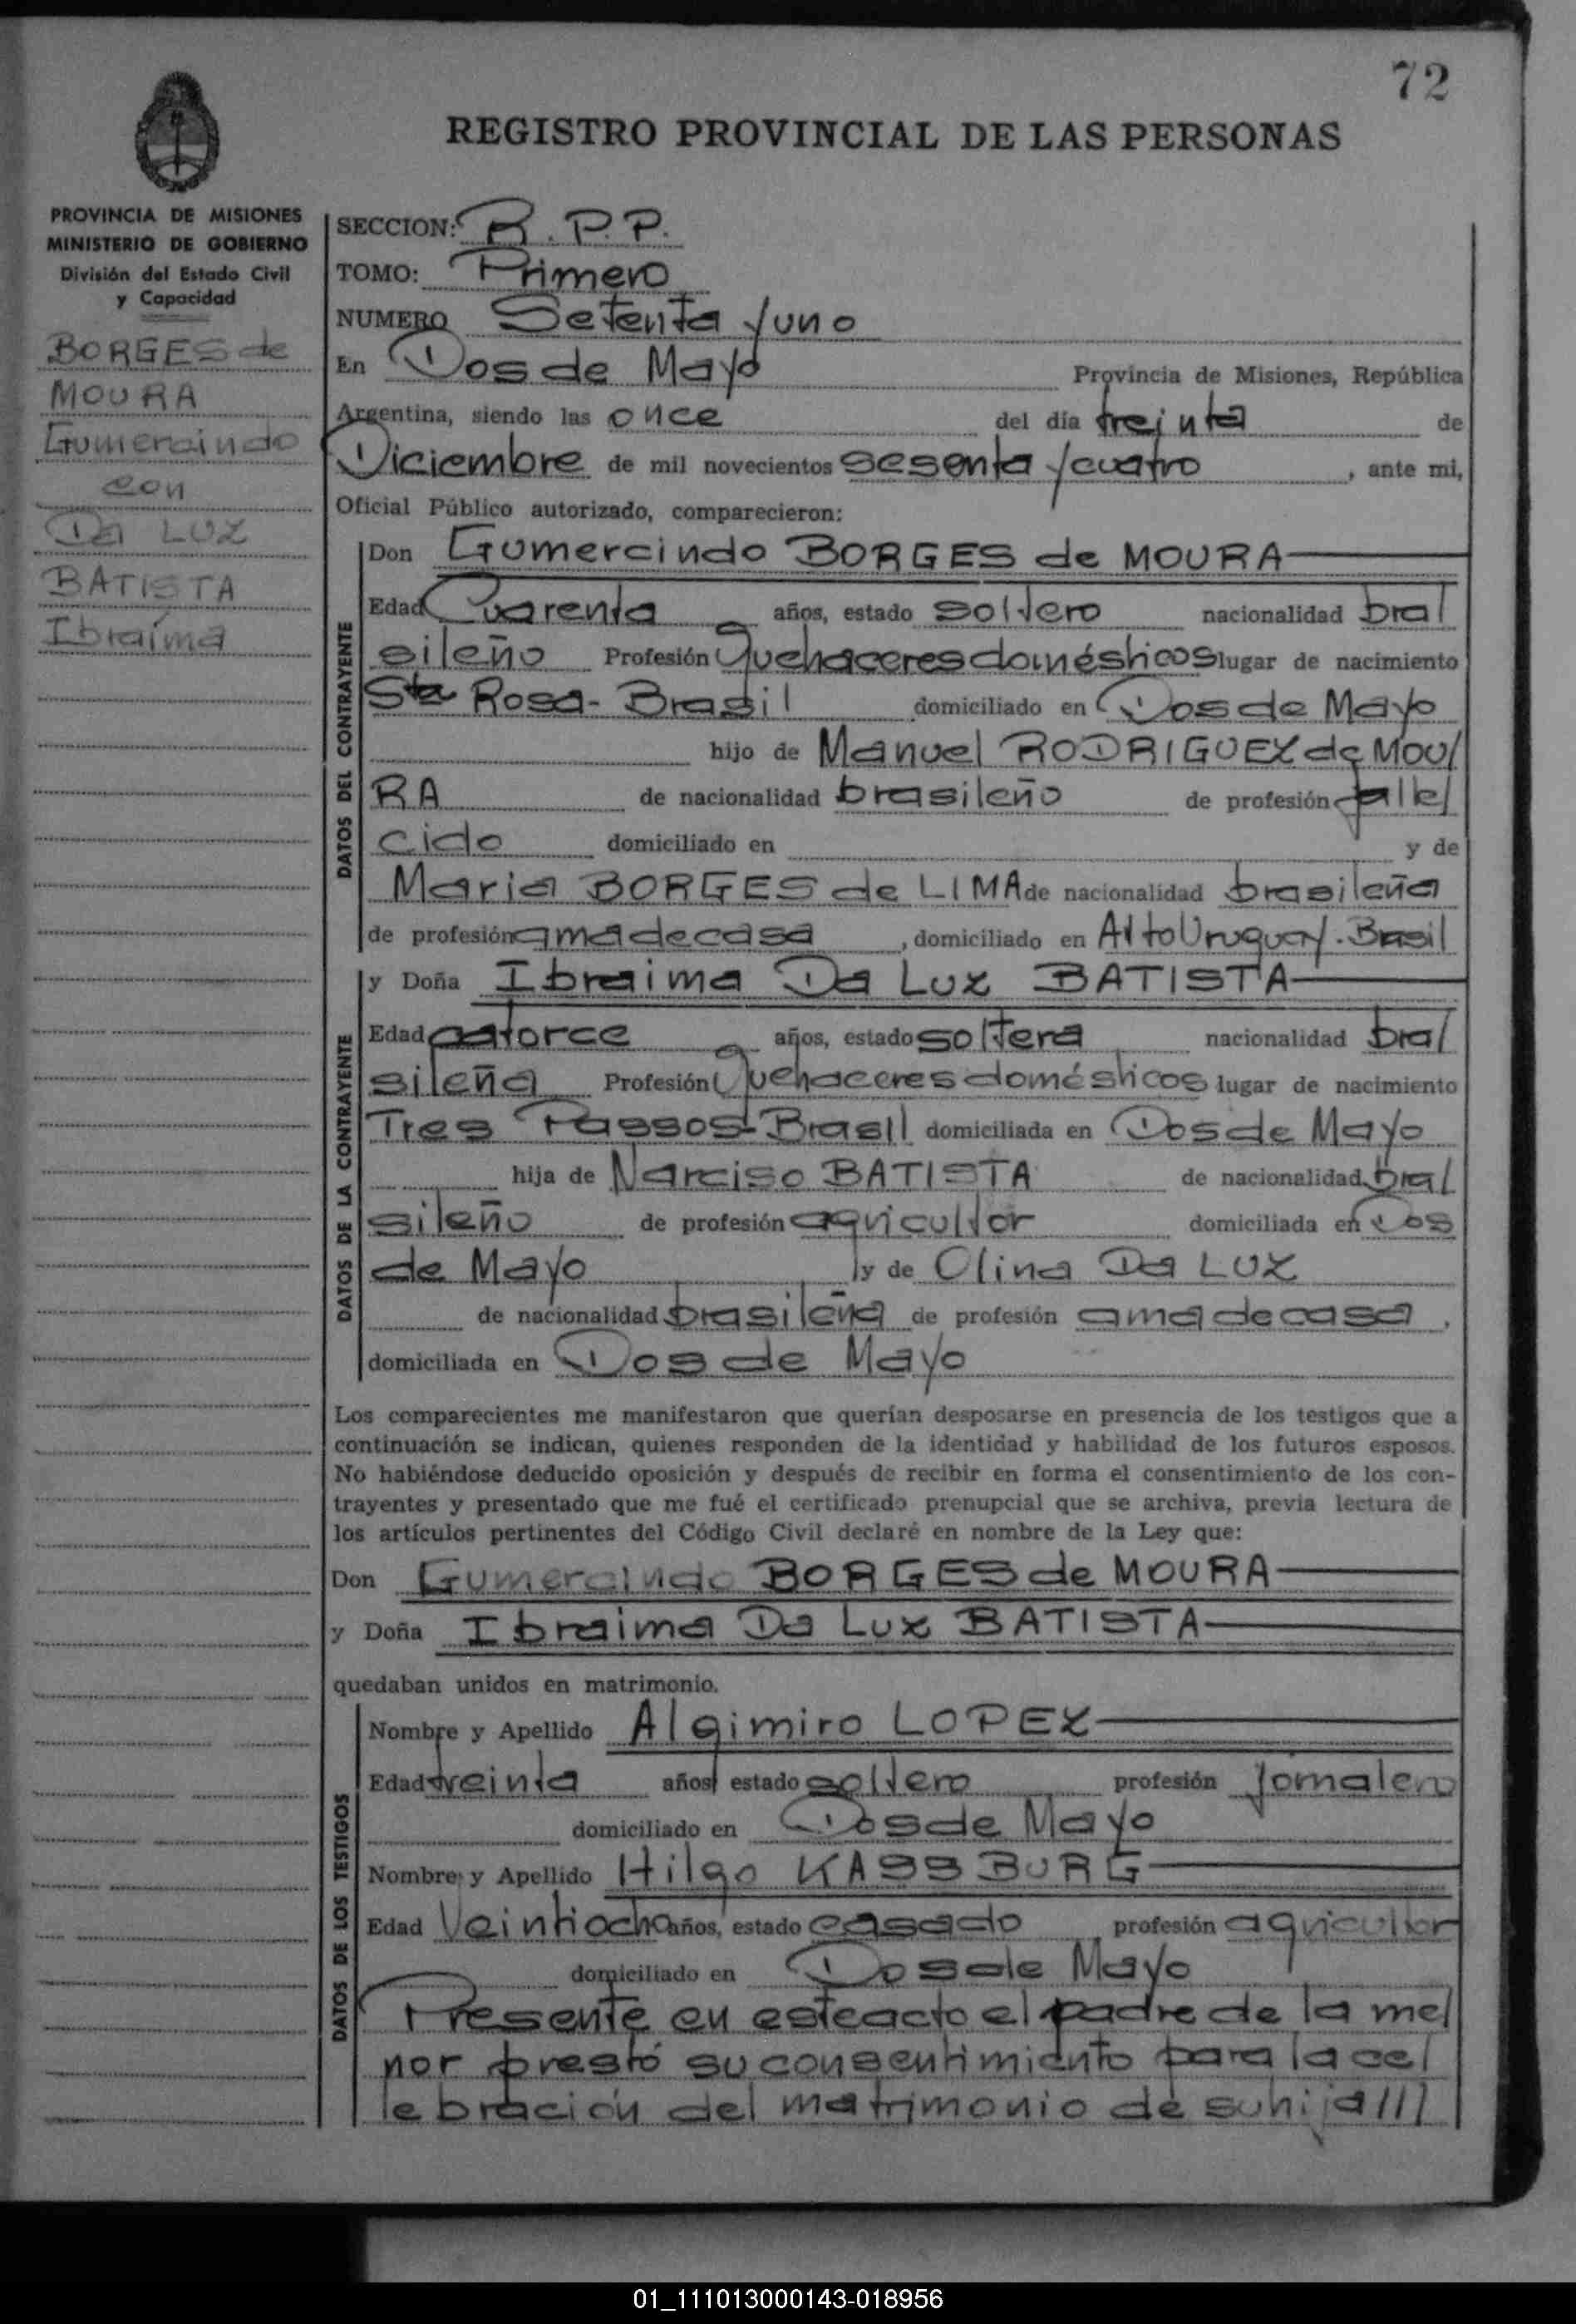 72
REGISTRO PROVINCIAL DE LAS PERSONAS
PROVINCIA DE MISIONES
MINISTERIO DE GOBIERNO
División del Estado Civil
y Capacidad
BORGES de
MOURA
Gumercindo
con
Da LUZ
BATISTA
Ibraíma
SECCION: R.P.P.
TOMO: Primero
NUMERO Setenta y uno
En Dos de Mayo Provincia de Misiones, República
Argentina, siendo las once del día treinta de
Diciembre de mil novecientos sesenta y cuatro, ante mi,
Oficial Público autorizado, comparecieron:
DATOS DEL CONTRAYENTE
Don Gumercindo BORGES de MOURA
Edad Cuarenta años, estado soltero nacionalidad bra/
sileño Profesión Quehaceres domésticos lugar de nacimiento
Sta Rosa - Brasil domiciliado en Dos de Mayo
hijo de Manuel RODRIGUEZ de MOU/
RA de nacionalidad brasileño de profesión falle/
cido domiciliado en y de
Maria BORGES de LIMA de nacionalidad brasileña
de profesión ama de casa, domiciliado en Alto Uruguay. Brasil
DATOS DE LA CONTRAYENTE
y Doña Ibraima Da Luz BATISTA
Edad catorce años, estado soltera nacionalidad bra/
sileña Profesión Quehaceres domésticos lugar de nacimiento
Tres Passos - Brasil domiciliada en Dos de Mayo
hija de Narciso BATISTA de nacionalidad bra/
sileño de profesión agricultor domiciliada en Dos
de Mayo y de Olina Da LUZ
de nacionalidad brasileña de profesión ama de casa,
domiciliada en Dos de Mayo
Los comparecientes me manifestaron que querían desposarse en presencia de los testigos que a
continuación se indican, quienes responden de la identidad y habilidad de los futuros esposos.
No habiéndose deducido oposición y después de recibir en forma el consentimiento de los con-
trayentes y presentado que me fué el certificado prenupcial que se archiva, previa lectura de
los artículos pertinentes del Código Civil declaré en nombre de la Ley que:
Don Gumercindo BORGES de MOURA
y Doña Ibraima Da Luz BATISTA
quedaban unidos en matrimonio.
DATOS DE LOS TESTIGOS
Nombre y Apellido Algimiro LOPEZ
Edad treinta años, estado soltero profesión jornalero
domiciliado en Dos de Mayo
Nombre y Apellido Hilgo KASSBURG
Edad Veintiocho años, estado casado profesión agricultor
domiciliado en Dos de Mayo
Presente en este acto el padre de la me/
nor prestó su consentimiento para la ce/
lebración del matrimonio de su hija///
01_111013000143-018956